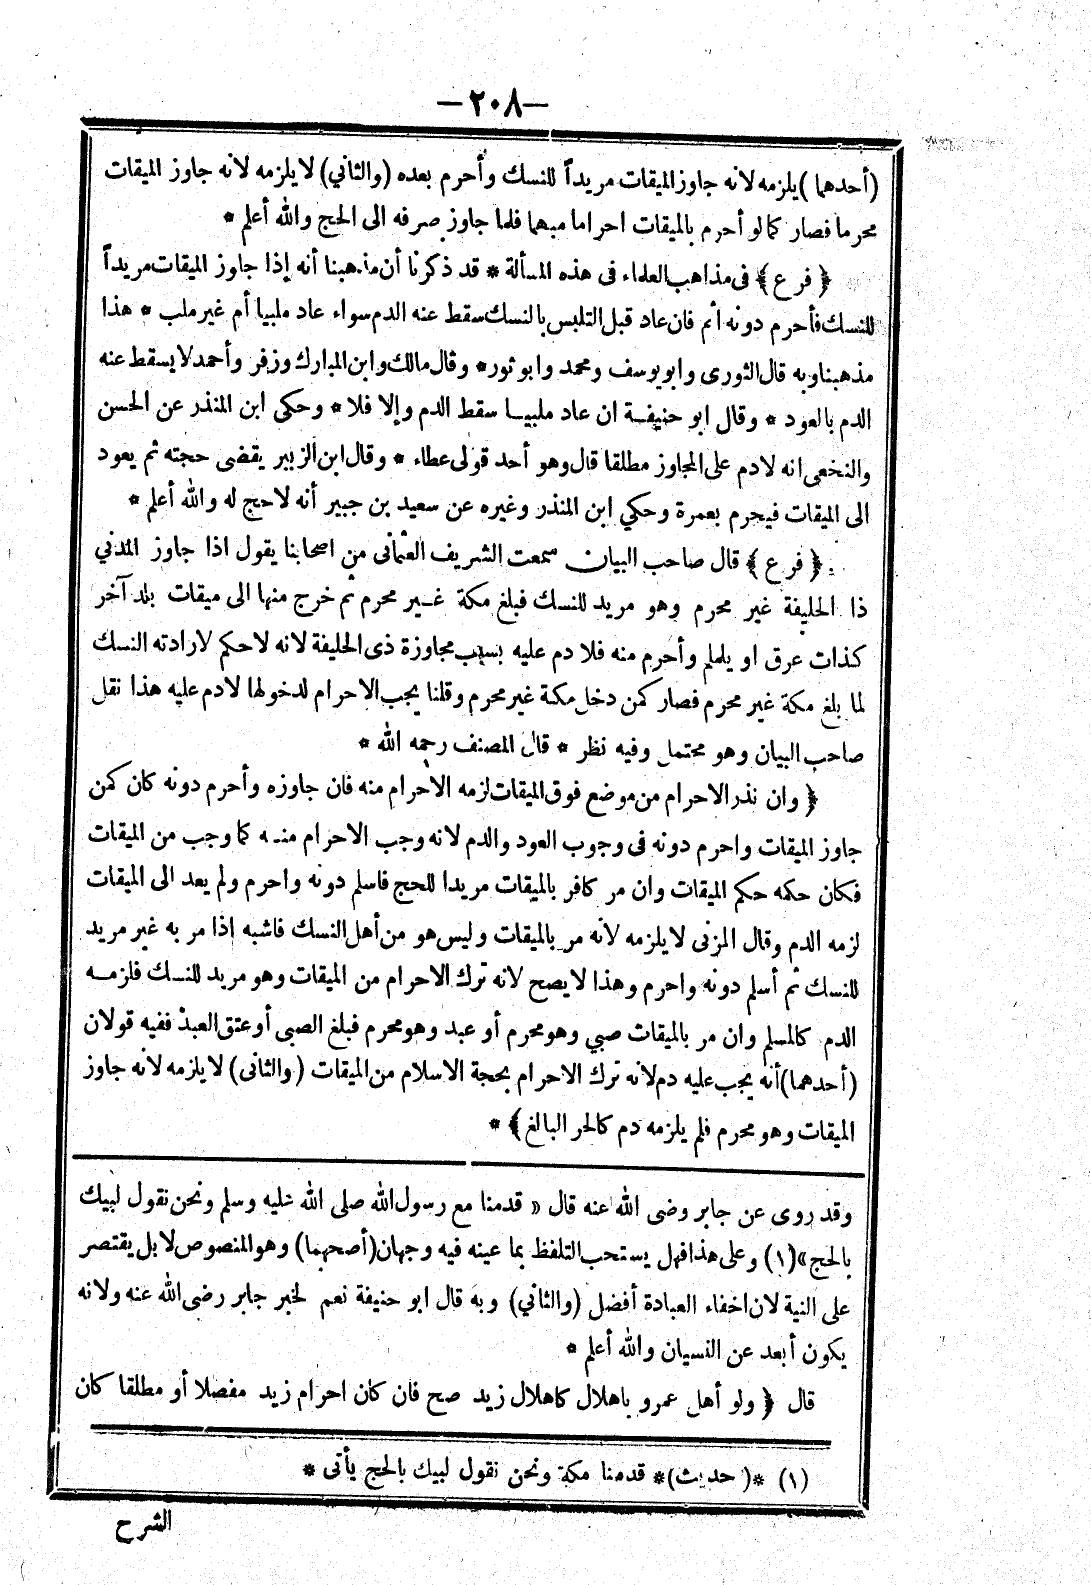 —٢٠٨—
(أحدهما) يلزمه لانه جاوز الميقات مريداً للنسك وأحرم بعده (والثاني) لا يلزمه لانه جاوز الميقات
محرما فصار كما لو أحرم بالميقات احراما مبهما فلما جاوز صرفه الى الحج والله أعلم *
﴿ فرع ﴾ فى مذاهب العلماء فى هذه المسألة * قد ذكرنا أن مذهبنا أنه إذا جاوز الميقات مريداً
للنسك فأحرم دونه أثم فان عاد قبل التلبس بالنسك سقط عنه الدم سواء عاد ملبيا أم غير ملب * هذا
مذهبنا وبه قال الثورى وابو يوسف ومحمد وابو ثور * وقال مالك وابن المبارك وزفر وأحمد لا يسقط عنه
الدم بالعود * وقال ابو حنيفة ان عاد ملبيا سقط الدم وإلا فلا * وحكى ابن المنذر عن الحسن
والنخعى انه لا دم على المجاوز مطلقا قال وهو أحد قولى عطاء * وقال ابن الزبير يقضى حجته ثم يعود
الى الميقات فيحرم بعمرة وحكي ابن المنذر وغيره عن سعيد بن جبير أنه لا حج له والله أعلم *
﴿ فرع ﴾ قال صاحب البيان سمعت الشريف العثمانى من اصحابنا يقول اذا جاوز المدني
ذا الحليفة غير محرم وهو مريد للنسك فبلغ مكة غير محرم ثم خرج منها الى ميقات بلد آخر
كذات عرق او يلملم وأحرم منه فلا دم عليه بسبب مجاوزة ذى الحليفة لانه لا حكم لارادته النسك
لما بلغ مكة غير محرم فصار كمن دخل مكة غير محرم وقلنا يجب الاحرام لدخولها لا دم عليه هذا نقل
صاحب البيان وهو محتمل وفيه نظر * قال المصنف رحمه الله *
﴿ وان نذر الاحرام من موضع فوق الميقات لزمه الأحرام منه فان جاوزه وأحرم دونه كان كمن
جاوز الميقات واحرم دونه فى وجوب العود والدم لانه وجب الاحرام منه كما وجب من الميقات
فكان حكمه حكم الميقات وان مر كافر بالميقات مريدا للحج فاسلم دونه واحرم ولم يعد الى الميقات
لزمه الدم وقال المزنى لا يلزمه لانه مر بالميقات وليس هو من أهل النسك فاشبه اذا مر به غير مريد
للنسك ثم أسلم دونه واحرم وهذا لا يصح لانه ترك الاحرام من الميقات وهو مريد للنسك فلزمه
الدم كالمسلم وان مر بالميقات صبي وهو محرم أو عبد وهو محرم فبلغ الصبى أو عتق العبد ففيه قولان
(أحدهما) أنه يجب عليه دم لانه ترك الاحرام بحجة الاسلام من الميقات (والثانى) لا يلزمه لانه جاوز
الميقات وهو محرم فلم يلزمه دم كالحر البالغ ﴾ *
وقد روى عن جابر رضى الله عنه قال « قدمنا مع رسول الله صلى الله عليه وسلم ونحن نقول لبيك
بالحج » (١) وعلى هذا فهل يستحب التلفظ بما عينه فيه وجهان (أصحهما) وهو المنصوص لا بل يقتصر
على النية لان اخفاء العبادة أفضل (والثاني) وبه قال ابو حنيفة نعم لخبر جابر رضى الله عنه ولانه
يكون أبعد عن النسيان والله أعلم *
قال ﴿ ولو أهل عمرو باهلال كاهلال زيد صح فان كان احرام زيد مفصلا أو مطلقا كان
(١) *(حديث)* قدمنا مكة ونحن نقول لبيك بالحج يأتى *
الشرح